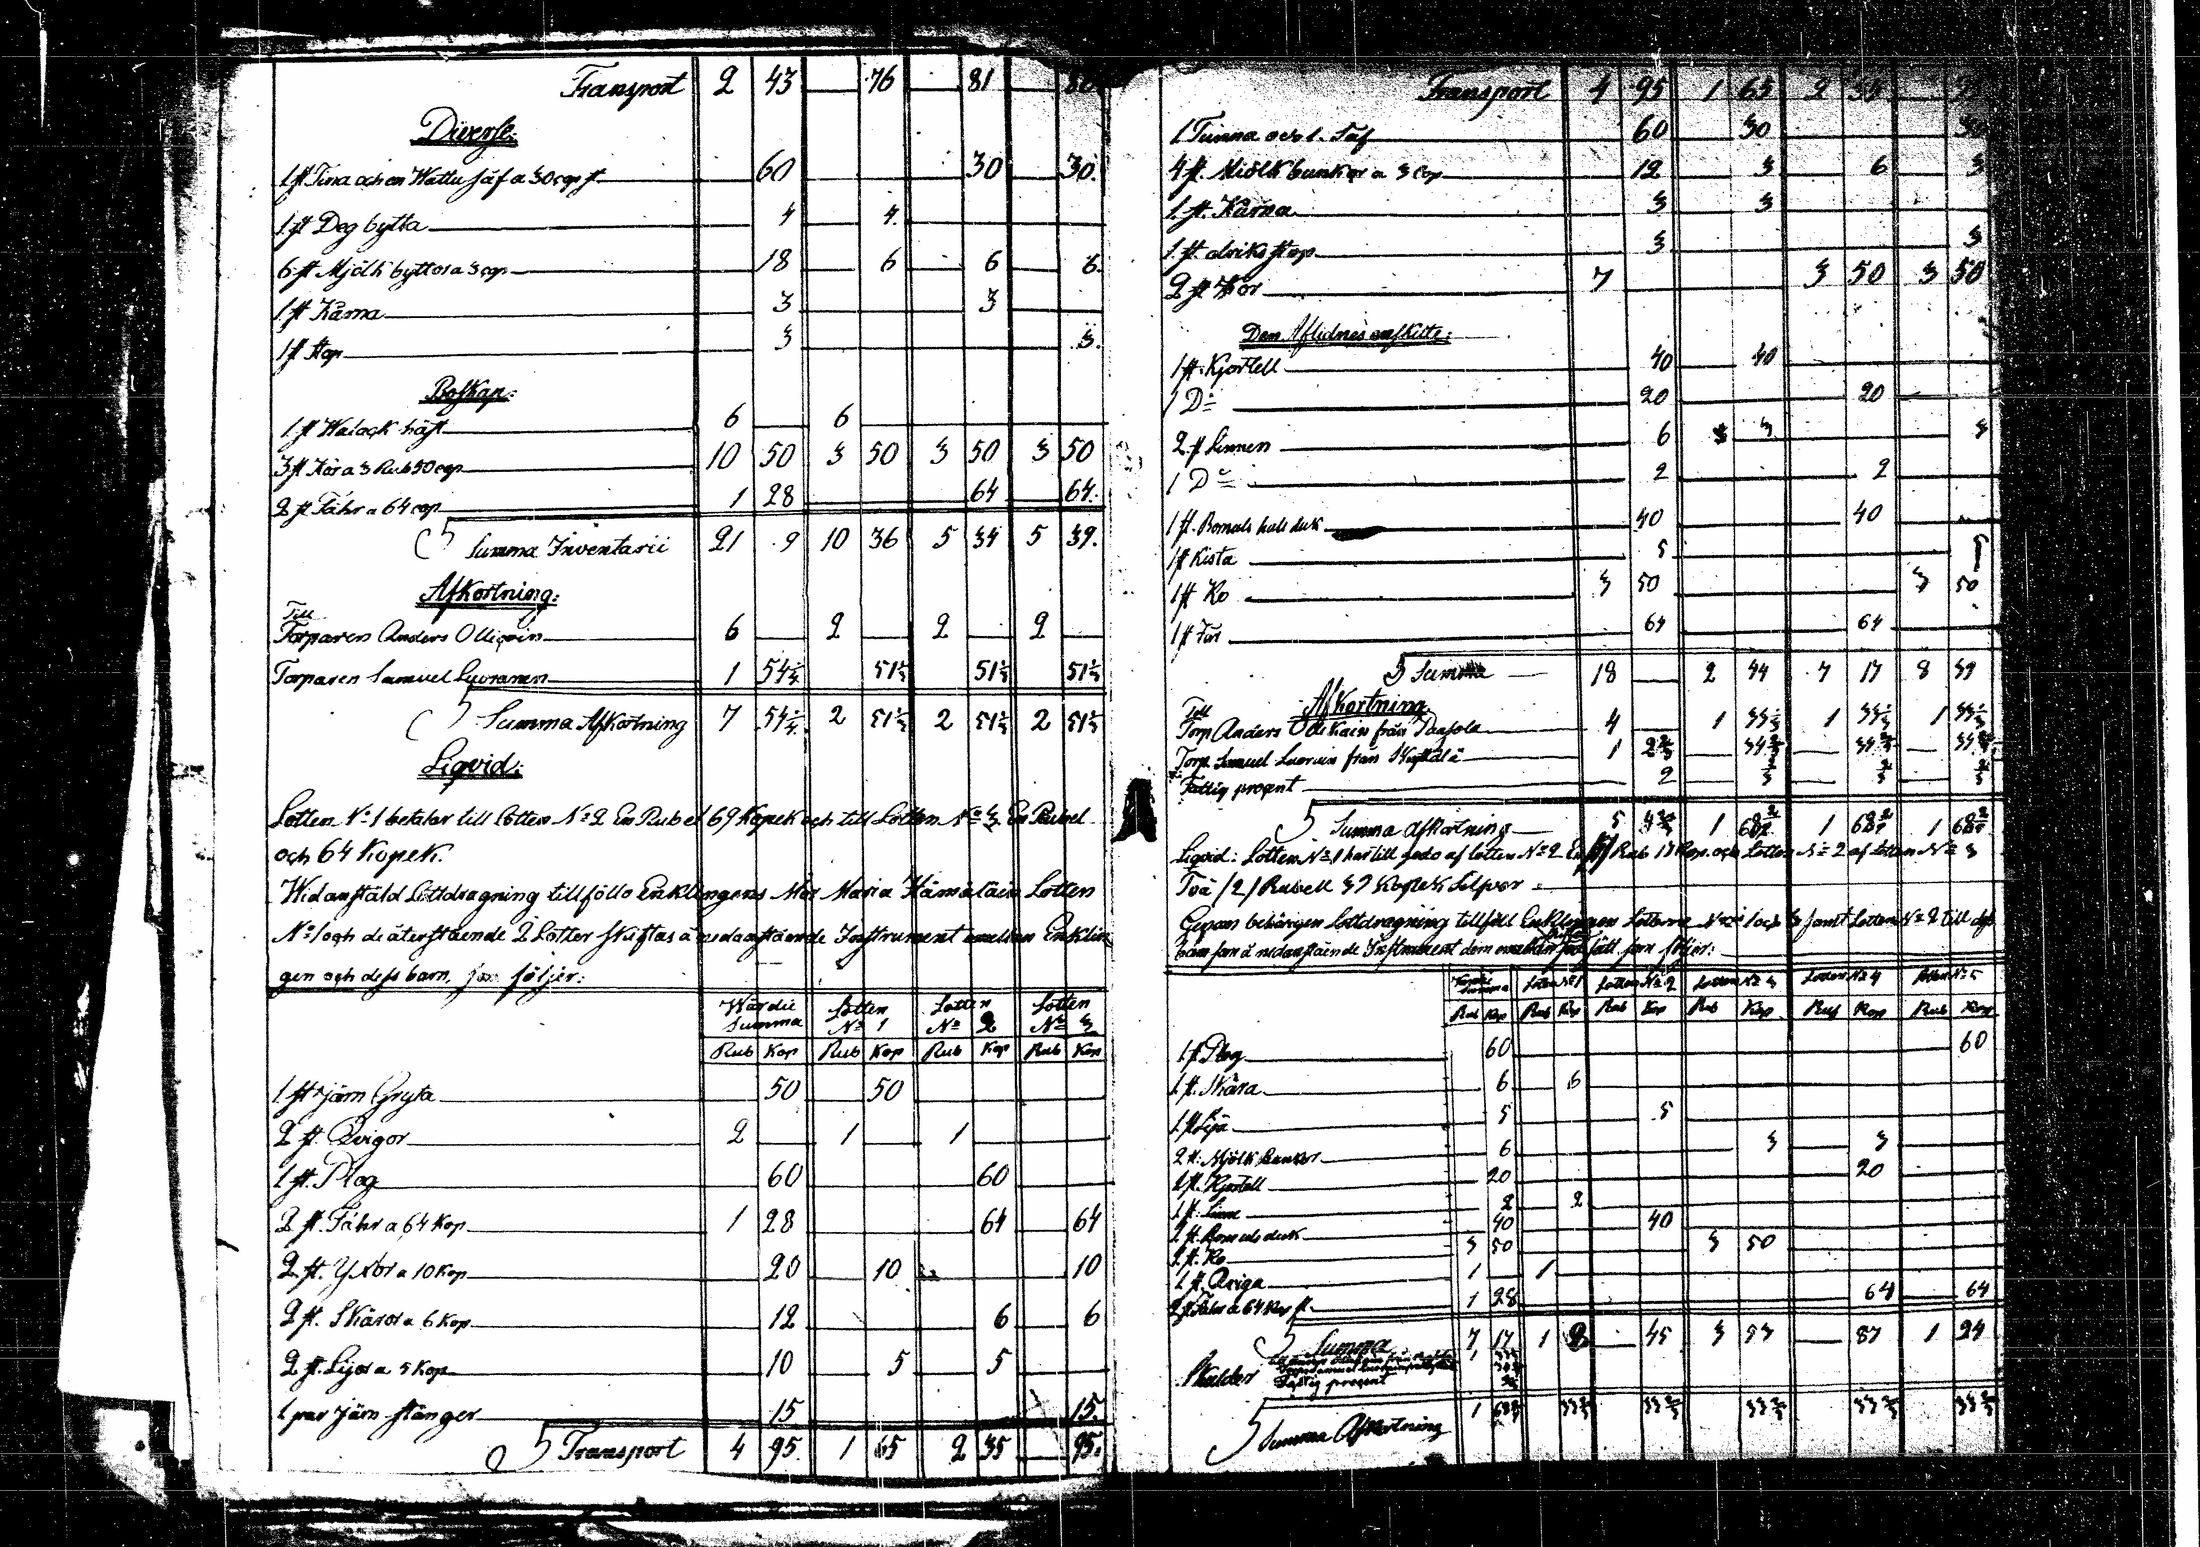 Transport 2 43 76 81 86
Diverse:
1 st Tina och en Wattu såf a 30 cop st 60 30 30.
1 st Deg bytta 4 4.
6 st Mjölk byttor a 3 cop 18 6 6 6.
1 st Kärna 3 3
1 st Stop 3 3.
Boskap:
1 st Walack häst 6 6
3 st Kor a 3 Rub 50 cop 10 50 3 50 3 50 3 50
2 st Fåhr a 64 cop 1 28 64 64.
Summa Inventarii 21 9 10 36 5 34 5 39.
Afkortning:
Till
Torparen Anders Ollicain 6 2 2 2
Torparen Samuel Luoranen 1 54 51 51 51
Summa Afkortning 7 54 2 51 2 51 2 51
Liqvid:
Lotten No 1 betalar till Lotten No 2 En Rubel 69 Kopek och till Lotten No 3 En Rubel
och 64 Kopek.
Wid anstäld Lottdragning tillföllo Enklingens Mor Maria Hämäläin Lotten
No 1 och de återstående 2 Lotter skiftas å nedanstående Instrument emellan Enklin
gen och dess barn, som följer:
Wärdie Summa Lotten No 1 Lotten No 2 Lotten No 3
Rub Kop Rub Kop Rub Kop Rub Kop
1 st järn Gryta 50 50
2 st. Qvigor 2 1 1
1 st. Plog 60 60
2 st. Fåhr a 64 Kop 1 28 64 64
2 st. Yxor a 10 Kop 20 10 10
2 st. Skäror a 6 Kop 12 6 6
2 st. Lijor a 5 Kop 10 5 5
1 par järn stänger 15 15.
Transport 4 95. 1 65 2 35 95.
Transport 4 95 1 65 2 35
1 Tunna och 1. Såf 60 30 30
4 st. Miölk bunkor a 3 Cop 12 3 6 3
1 st. Kärna 3 3
1 st. dricks stop 3 3
2 st Kor 7 3 50 3 50
Den Aflidnes enskilte:
1 st. Kjortell 40 40
1 Do 20 20
2 st Linnen 6 3 3
1 Do 2 2
1 st. Bomuls hals duk 40 40
1 st Kista 5
1 st Ko 3 50 3 50
1 st Får 64 64
Summa 18 2 44 7 17 8 39
Afkortning
Till
Torp Anders Ollikain från 4 1 33 1 33 1 33
Torp. Samuel från 1 2 34 34 34
Fattig procent 2
Summa afkortning 5 4 1 68 1 68 1 68
Liqvid: Lotten No 1 har till godo af lotten No 2 Rub 17 Kop. och Lotten No 2 af lotten No 3
Två /2/ Rubell 39 Kopek Silfver
Genom behörigen Lottdragning tillföll Enklingen Lotterne No 1 och 3 samt Lotten No 2 till dess
barn som å nedanstående Instrument dem emellan som följer:
Summa Lotten No 1 Lotten No 2 Lotten No 3 Lotten No 4 Lotten No 5
Rub Kop Rub Kop Rub Kop Rub Kop Rub Kop Rub Kop
1 st Plog 60 60
1 st. Skära 6 6
1 st Lija 5 5
2 st. Mjölk Bunkor 6 3 3
1 st. Kjortell 20 20
1 st. Linne 2 2
1 st. Bomuls duk 40 40
1 st. Ko 3 50 3 50
1 st. Qviga 1 1
2 st Fåhr a 64 Kop st. 1 28 64 64
Summa 7 17 1 8 45 3 53 87 1 24
Skulder
Fattig procent
Summa Afkortning 1 68 33 33 33 33 33